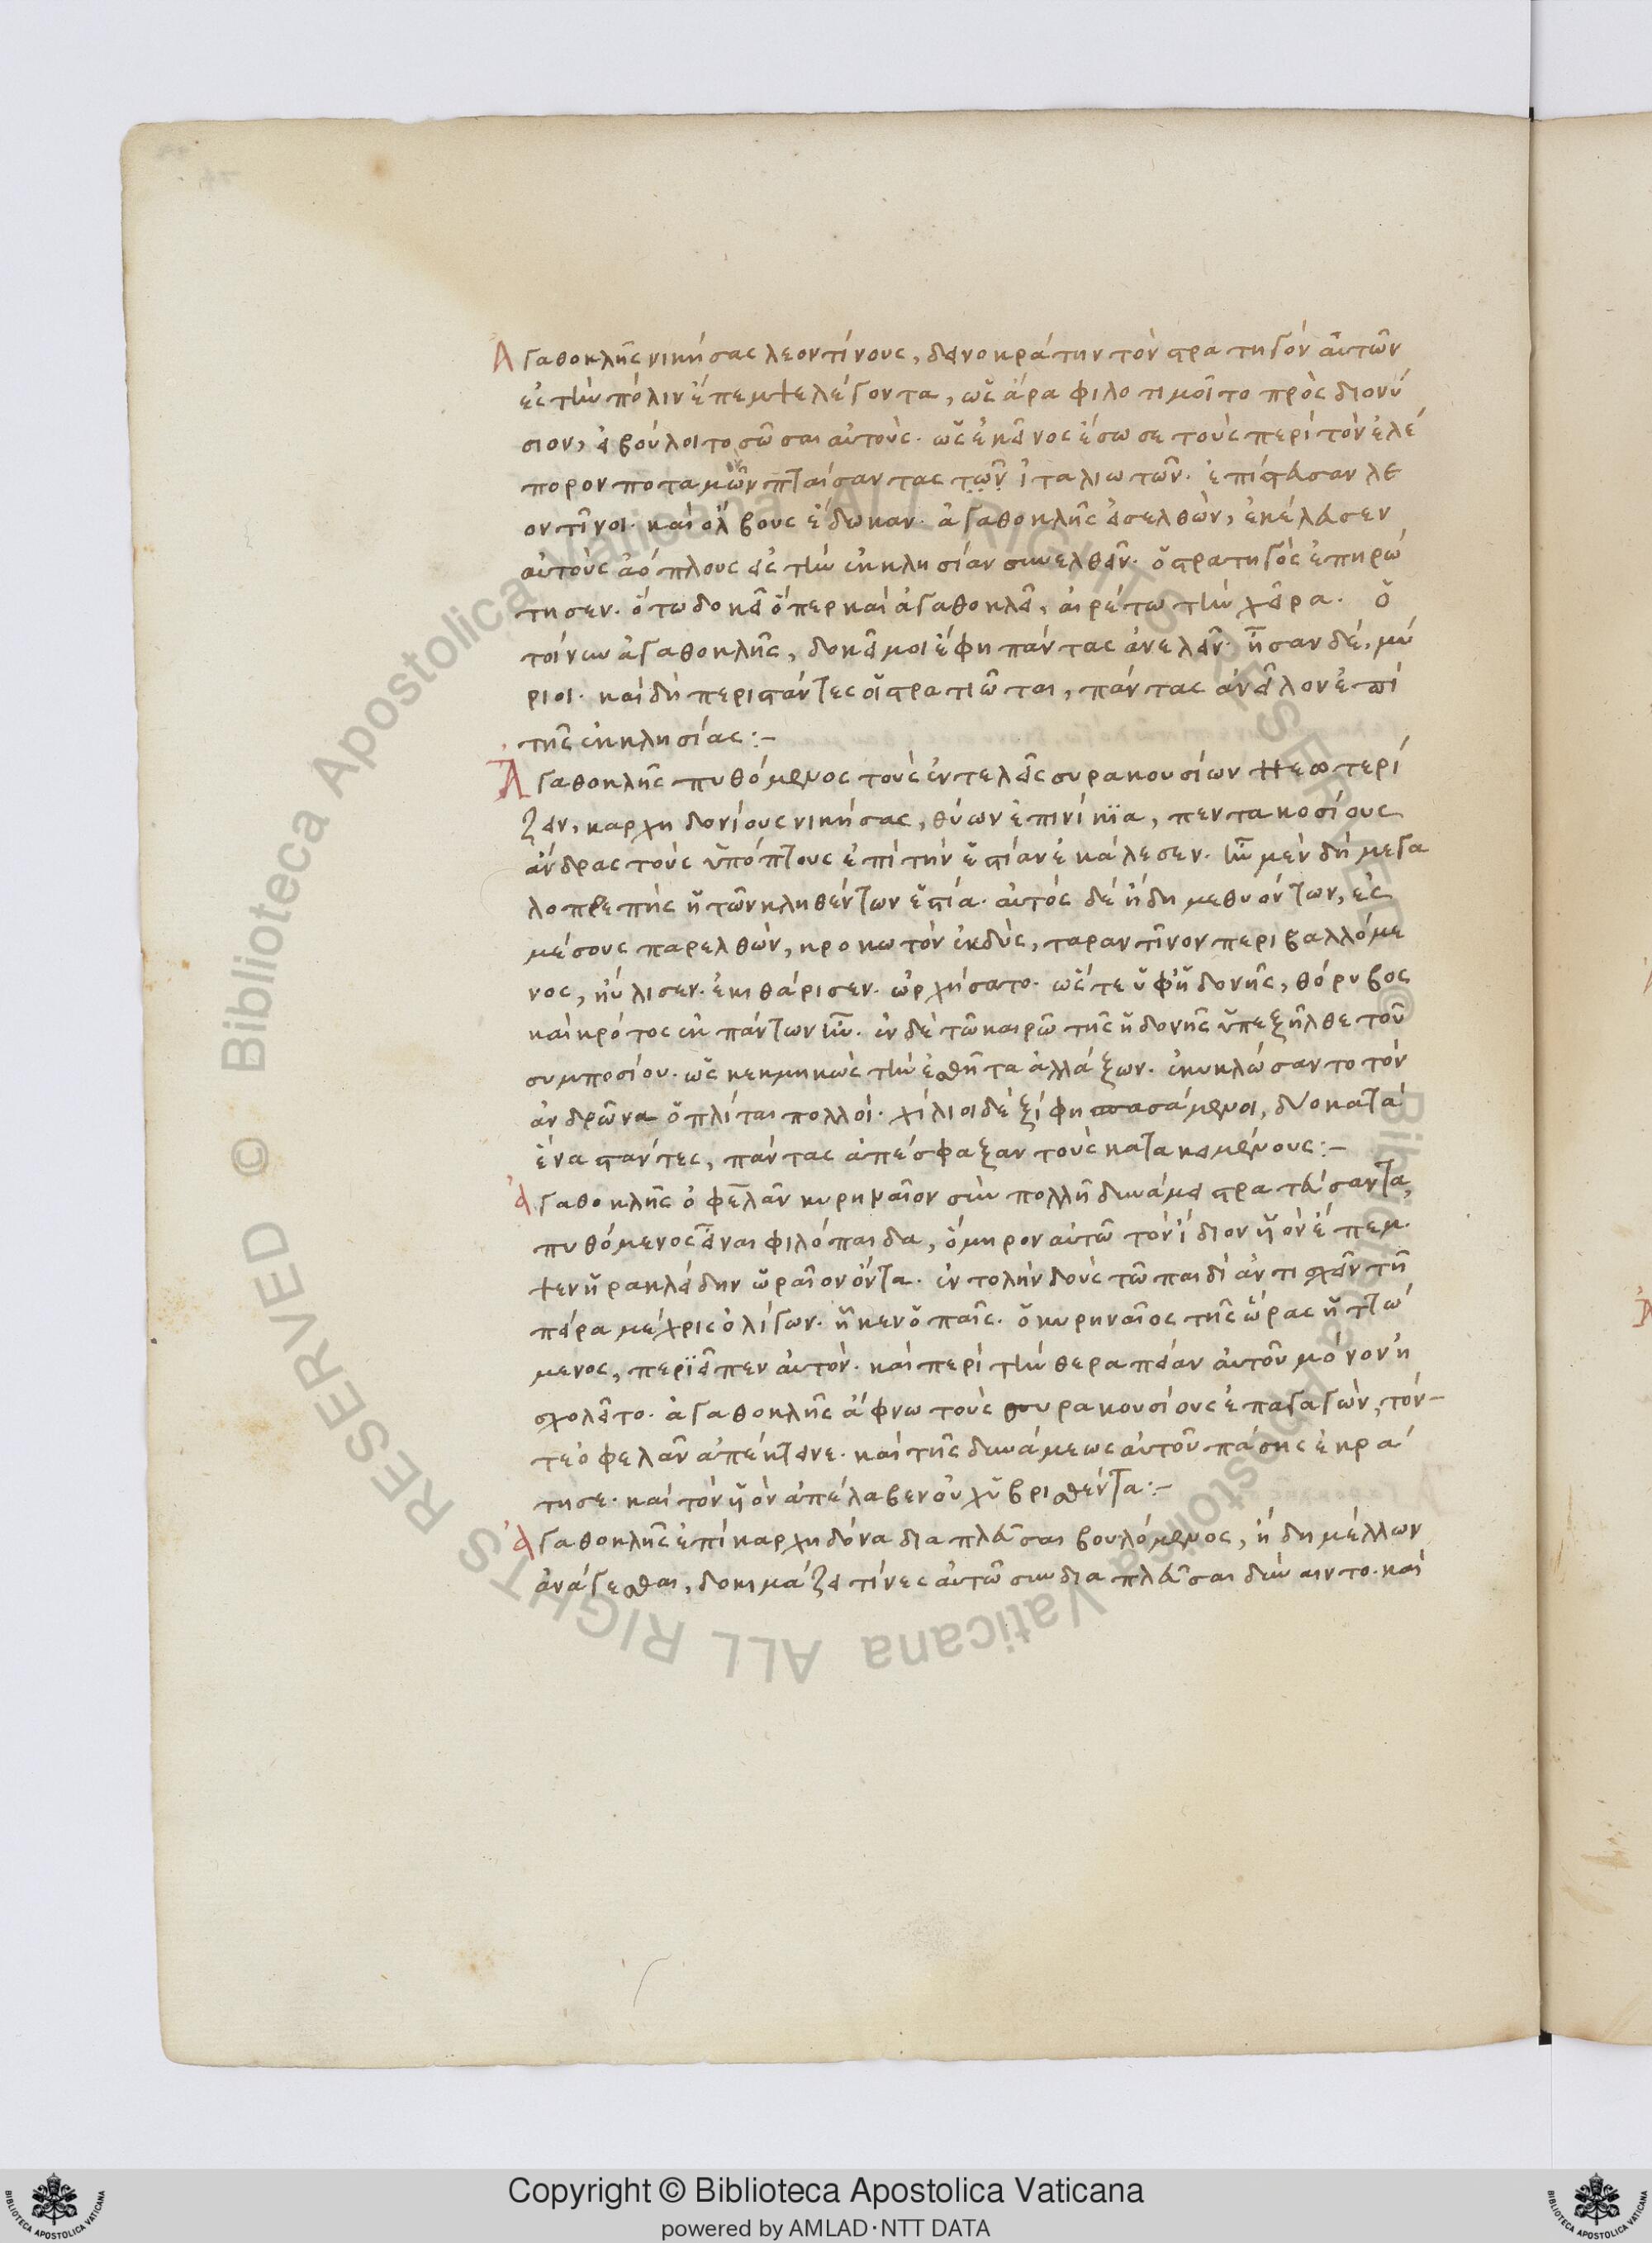 Ἀγαθοκλῆς νικήσας λεοντίνους, δεινοκράτην τὸν στρατηγὸν αὐτῶν
ἐς τὴν πόλιν ἔπεμψε λέγοντα, ὡς ἄρα φιλοτιμοῖτο πρὸς διονύ
σιον, εἰ βούλοιτο σῶσαι αὐτούς. ὡς ἐκεῖνος ἔσωσε τοὺς περὶ τὸν ἐλέ
πορον ποταμὸν πταίσαντας τῶν ἰταλιωτῶν. ἐπίστευσαν λε
οντῖνοι. καὶ ὅρκους ἔδωκαν. ἀγαθοκλῆς εἰσελθὼν, ἐκέλευσεν
αὐτοὺς ἀόπλους εἰς τὴν ἐκκλησίαν συνελθεῖν. ὁ στρατηγὸς ἐπηρώ
τησεν. ὅτω δοκεῖ ὅπερ καὶ ἀγαθοκλεῖ, αἰρέτω τὴν χεῖρα. ὁ
τοίνυν ἀγαθοκλῆς, δοκεῖ μοι ἔφη πάντας ἀνελεῖν. ἦσαν δέ, μύ
ριοι. καὶ δὴ περιστάντες οἱ στρατιῶται, πάντας ἀνεῖλον ἐπὶ
τῆς ἐκκλησίας:–
Ἀγαθοκλῆς πυθόμενος τοὺς ἐν τέλει συρακουσίων νεωτερί
ζειν, καρχηδονίους νικήσας, θύων ἐπινίκϊα, πεντακοσίους
ἄνδρας τοὺς ὑπόπτους ἐπὶ τὴν ἑστίαν ἐκάλεσεν. ἦν μὲν δὴ μεγα
λοπρεπὴς ἡ τῶν κληθέντων ἑστία. αὐτὸς δὲ ἤδη μεθυόντων, ἐς
μέσους παρελθὼν, κροκωτὸν ἐκδὺς, ταραντῖνον περιβαλλόμε
νος, ηὔλισεν. ἐκιθάρισεν. ὠρχήσατο. ὥστε ὑφ' ἡδονῆς, θόρυβος
καὶ κρότος ἐκ πάντων ἦν. ἐν δὲ τῶ καιρῶ τῆς ἡδονῆς ὑπεξῆλθε τοῦ
συμποσίου. ὡς κεκμηκὼς τὴν ἐσθῆτα ἀλλάξων. ἐκυκλώσαντο τὸν
ἀνδρῶνα ὁπλίται πολλοί. χίλιοι δὲ ξίφη σπασάμενοι, δύο κατὰ
ἕνα στάντες, πάντας ἀπέσφαξαν τοὺς κατακειμένους:–
Ἀγαθοκλῆς ὀφελᾶν κυρηναῖον σὺν πολλῆ δυνάμει στρατεύσαντα,
πυθόμενος εἶναι φιλόπαιδα, ὅμηρον αὐτῶ τὸν ἴδιον υἱὸν ἔπεμ
ψεν ἡρακλείδην ὡραῖον ὄντα. ἐντολὴν δοὺς τῶ παιδὶ ἀντισχεῖν τῆ
πείρα μέχρις ὀλίγων. ἧκεν ὁ παῖς. ὁ κυρηναῖος τῆς ὥρας ἡττώ
μενος, περϊεῖπεν αὐτόν. καὶ περὶ τὴν θεραπείαν αὐτοῦ μόνον ἠ
σχολεῖτο. ἀγαθοκλῆς ἄφνω τοὺς συρακουσίους ἐπαγαγὼν, τόν
τε ὀφελᾶν ἀπέκτεινε. καὶ τῆς δυνάμεως αὐτοῦ πάσης ἐκρά
τησε. καὶ τὸν υἱὸν ἀπέλαβεν οὐχ ὑβρισθέντα:–
Ἀγαθοκλῆς ἐπὶ καρχηδόνα διαπλεῦσαι βουλόμενος, ἤδη μέλλων
ἀνάγεσθαι, δοκιμάζει τίνες αὐτῶ συνδιαπλεῦσαι δύναιντο. καὶ
Copyright © Biblioteca Apostolica Vaticana
powered by AMLAD·NTT DATA
© Biblioteca Apostolica Vaticana ALL RIGHTS RESERVED
© Biblioteca Apostolica Vaticana ALL RIGHTS RESERVED
BIBLIOTECA APOSTOLICA VATICANA
BIBLIOTECA APOSTOLICA VATICANA